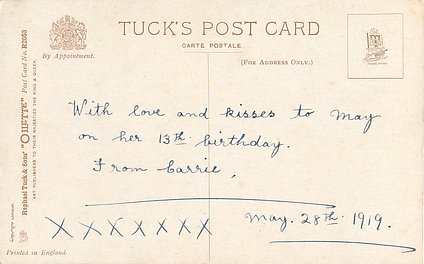 TUCK'S POST CARD
CARTE POSTALE
By Appointment.
(FOR ADDRESS ONLY.)
Raphael Tuck & Sons' "OILETTE" Post Card No. R2053
ART PUBLISHERS TO THEIR MAJESTIES THE KING & QUEEN.
Copyright London.
With love and kisses to May
on her 13th birthday.
From Carrie,
X X X X X X X
May. 28th 1919.
Printed in England.